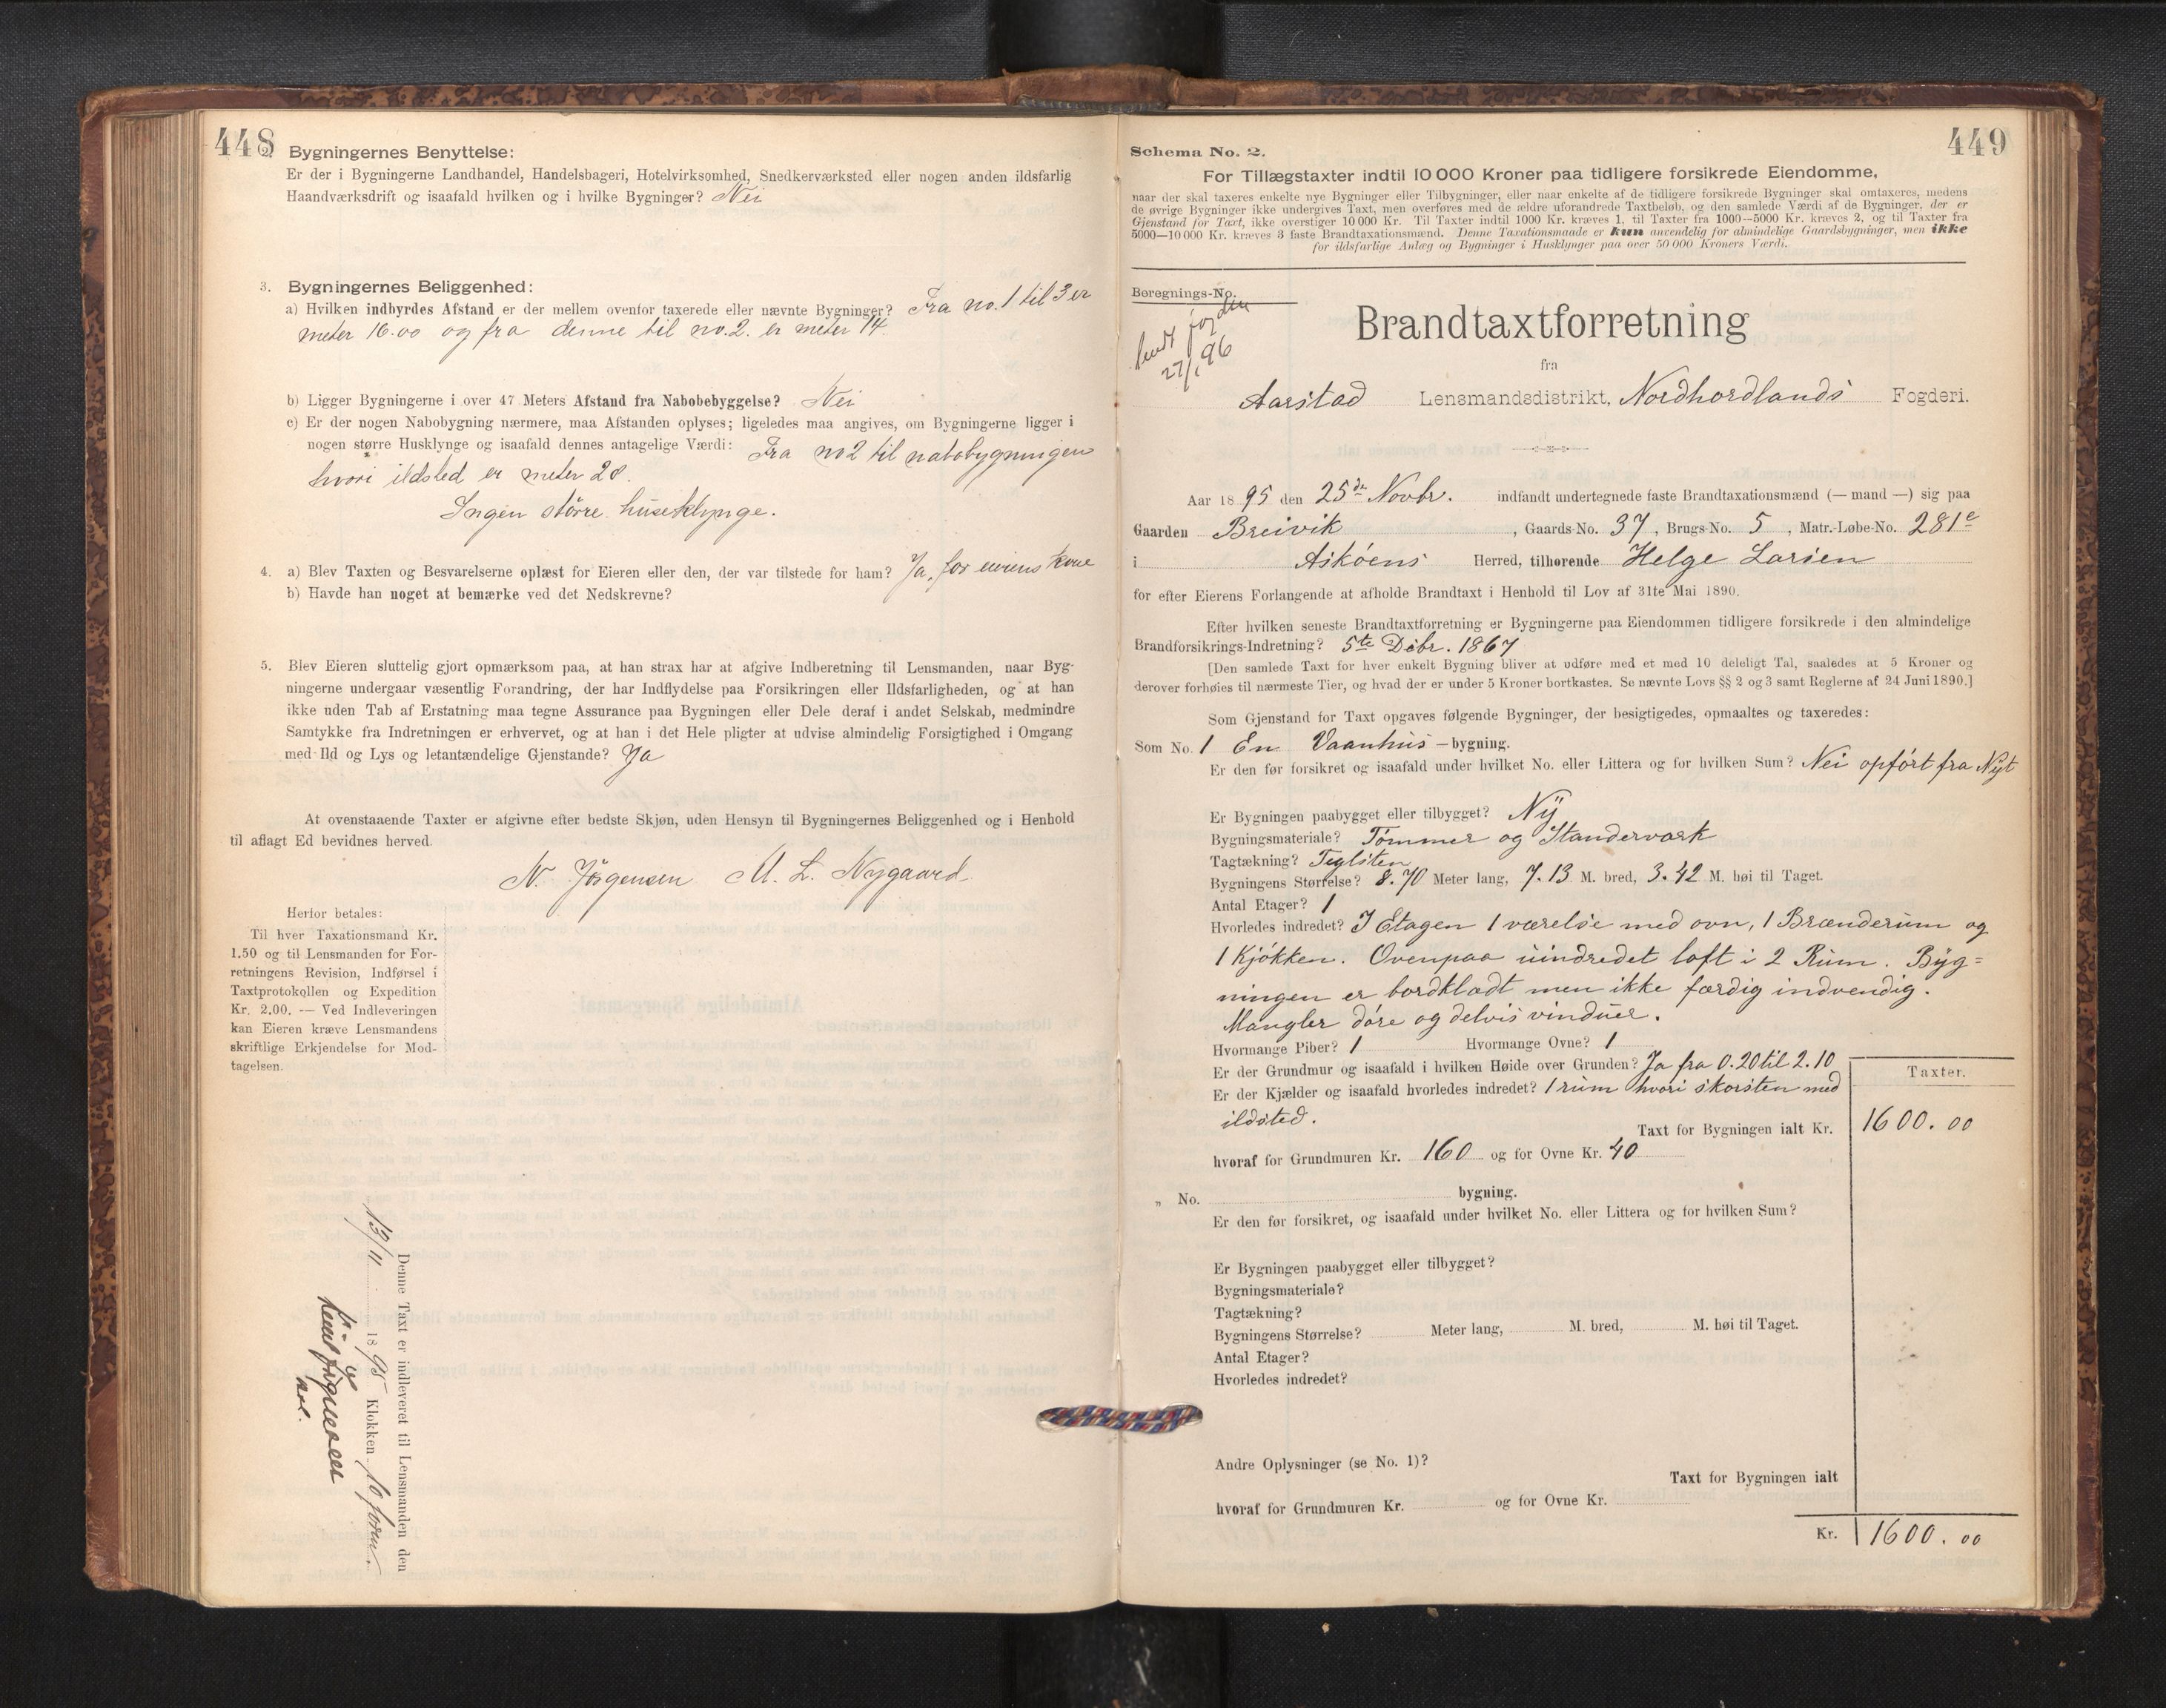 448
2. Bygningernes Benyttelse:
Er der i Bygningerne Landhandel, Handelsbageri, Hotelvirksomhed, Snedkerværksted eller nogen anden ildsfarlig
Haandværksdrift og isaafald hvilken og i hvilke Bygninger? Nei
3. Bygningernes Beliggenhed:
a) Hvilken indbyrdes Afstand er der mellem ovenfor taxerede eller nævnte Bygninger? Fra no. 1 til 3 er
meter 16.00 og fra denne til no. 2. er meter 14.
b) Ligger Bygningerne i over 47 Meters Afstand fra Nabobebyggelse? Nei
c) Er der nogen Nabobygning nærmere, maa Afstanden oplyses; ligeledes maa angives, om Bygningerne ligger i
nogen større Husklynge og isaafald dennes antagelige Værdi: Fra no 2 til nabobygningen
hvori ildsted er meter 28.
Ingen större huseklynge.
4. a) Blev Taxten og Besvarelserne oplæst for Eieren eller den, der var tilstede for ham? Ja, for eierens kone
b) Havde han noget at bemærke ved det Nedskrevne?
5. Blev Eieren sluttelig gjort opmærksom paa, at han strax har at afgive Indberetning til Lensmanden, naar Byg-
ningerne undergaar væsentlig Forandring, der har Indflydelse paa Forsikringen eller Ildsfarligheden, og at han
ikke uden Tab af Erstatning maa tegne Assurance paa Bygningen eller Dele deraf i andet Selskab, medmindre
Samtykke fra Indretningen er erhvervet, og at han i det Hele pligter at udvise almindelig Forsigtighed i Omgang
med Ild og Lys og letantændelige Gjenstande? Ja
At ovenstaaende Taxter er afgivne efter bedste Skjøn, uden Hensyn til Bygningernes Beliggenhed og i Henhold
til aflagt Ed bevidnes herved.
N. Jörgensen M. L. Nygaard.
Herfor betales:
Til hver Taxationsmand Kr.
1.50 og til Lensmanden for For-
retningens Revision, Indførsel i
Taxtprotokollen og Expedition
Kr. 2.00. — Ved Indleveringen
kan Eieren kræve Lensmandens
skriftlige Erkjendelse for Mod-
tagelsen.
Denne Taxt er indleveret til Lensmanden den
13/11 1895 Klokken 10 form.
449
Schema No. 2.
For Tillægstaxter indtil 10 000 Kroner paa tidligere forsikrede Eiendomme,
naar der skal taxeres enkelte nye Bygninger eller Tilbygninger, eller naar enkelte af de tidligere forsikrede Bygninger skal omtaxeres, medens
de øvrige Bygninger ikke undergives Taxt, men overføres med de ældre uforandrede Taxtbeløb, og den samlede Værdi af de Bygninger, der er
Gjenstand for Taxt, ikke overstiger 10 000 Kr. Til Taxter indtil 1000 Kr. kræves 1, til Taxter fra 1000—5000 Kr. kræves 2, og til Taxter fra
5000—10 000 Kr. kræves 3 faste Brandtaxationsmænd. Denne Taxationsmaade er kun anvendelig for almindelige Gaardsbygninger, men ikke
for ildsfarlige Anlæg og Bygninger i Husklynger paa over 50 000 Kroners Værdi.
Beregnings-No.
sendt fogden
27/1 96
Brandtaxtforretning
fra
Aarstad Lensmandsdistrikt, Nordhordlands Fogderi.
Aar 1895 den 25de Novbr. indfandt undertegnede faste Brandtaxationsmænd (— mand —) sig paa
Gaarden Breivik, Gaards-No. 37, Brugs-No. 5, Matr.-Løbe-No. 281c
i Askøens Herred, tilhørende Helge Larsen
for efter Eierens Forlangende at afholde Brandtaxt i Henhold til Lov af 31te Mai 1890.
Efter hvilken seneste Brandtaxtforretning er Bygningerne paa Eiendommen tidligere forsikrede i den almindelige
Brandforsikrings-Indretning? 5te Debr. 1867
[Den samlede Taxt for hver enkelt Bygning bliver at udføre med et med 10 deleligt Tal, saaledes at 5 Kroner og
derover forhøies til nærmeste Tier, og hvad der er under 5 Kroner bortkastes. Se nævnte Lovs §§ 2 og 3 samt Reglerne af 24 Juni 1890.]
Som Gjenstand for Taxt opgaves følgende Bygninger, der besigtigedes, opmaaltes og taxeredes:
Som No. 1 En Vaanhus-bygning.
Er den før forsikret og isaafald under hvilket No. eller Littera og for hvilken Sum? Nei opført fra Nyt
Er Bygningen paabygget eller tilbygget? Ny
Bygningsmateriale? Tømmer og Standerværk
Tagtækning? Teglsten
Bygningens Størrelse? 8.70 Meter lang, 7.13 M. bred, 3.42 M. høi til Taget.
Antal Etager? 1
Hvorledes indredet? I Etagen 1 værelse med ovn, 1 Brænderum og
1 Kjøkken. Ovenpaa uindredet loft i 2 Rum. Byg=
ningen er bordklædt men ikke færdig indvendig.
Mangler døre og delvis vinduer.
Hvormange Piber? 1 Hvormange Ovne? 1
Er der Grundmur og isaafald i hvilken Høide over Grunden? Ja fra 0.20 til 2.10
Er der Kjælder og isaafald hvorledes indredet? 1 rum hvori skorsten med
ildsted.
Taxter.
Taxt for Bygningen ialt Kr. 1600.00
hvoraf for Grundmuren Kr. 160 og for Ovne Kr. 40
„ No. bygning.
Er den før forsikret, og isaafald under hvilket No. eller Littera og for hvilken Sum?
Er Bygningen paabygget eller tilbygget?
Bygningsmateriale?
Tagtækning?
Bygningens Størrelse? Meter lang, M. bred, M. høi til Taget.
Antal Etager?
Hvorledes indredet?
Andre Oplysninger (se No. 1)?
Taxt for Bygningen ialt
hvoraf for Grundmuren Kr. og for Ovne Kr.
Kr. 1600.00